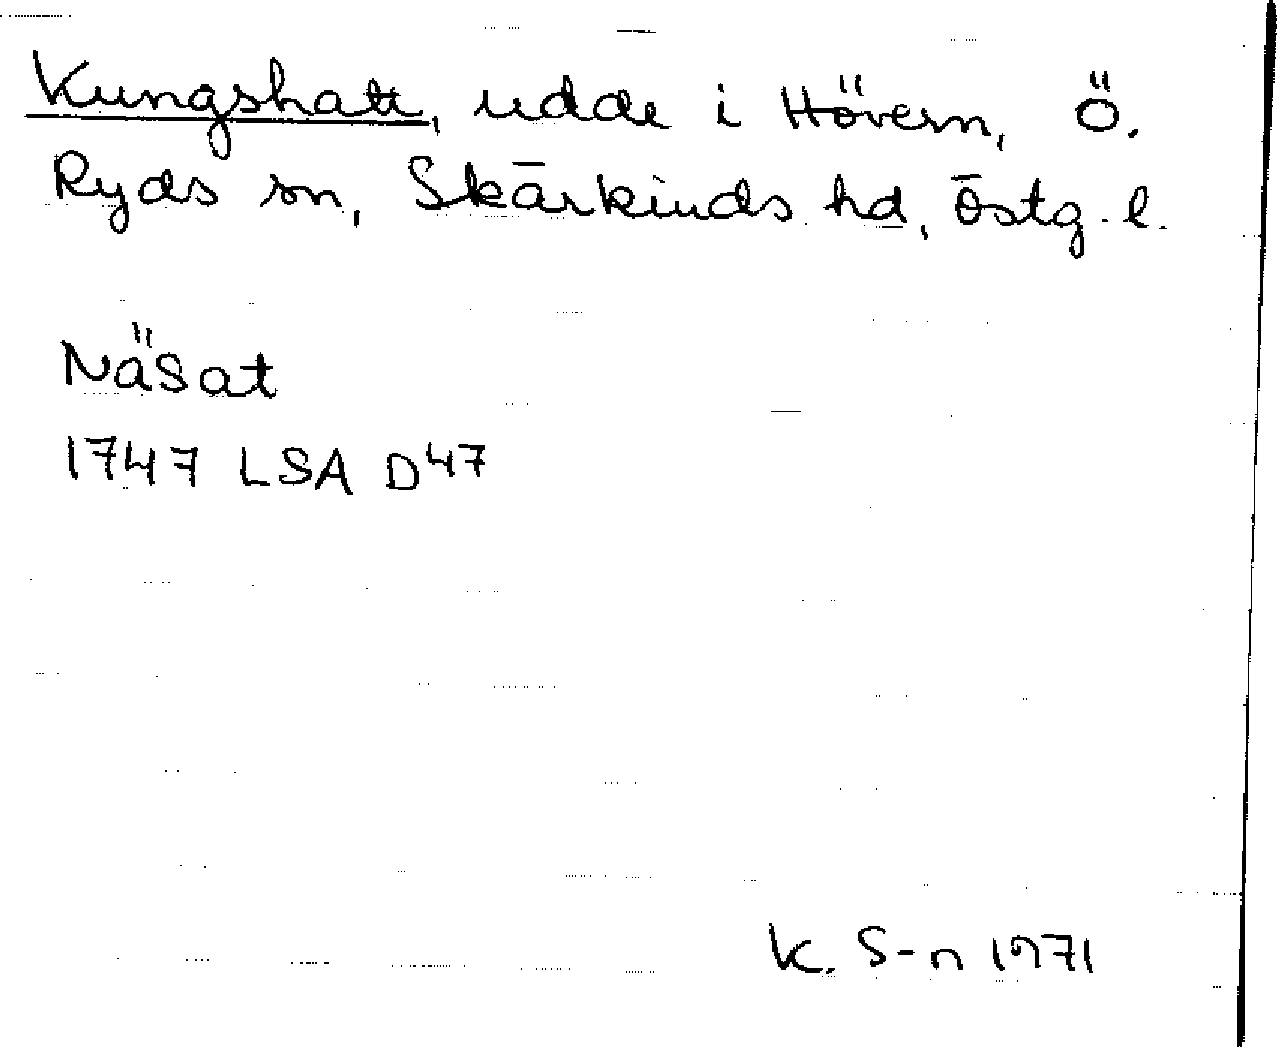 Kungshatt, udde i Hövern, Ö.
Ryds sn, Skärkinds hd, Östg. l.
Näsat
1747 LSA D47
K. S-n 1971